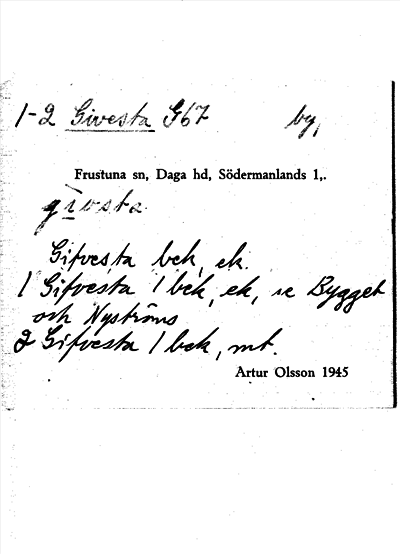 1-2 Givesta G67 by,
Frustuna sn, Daga hd, Södermanlands l,.
givsta
Gifvesta bek, ek.
1 Gifvesta 1 bek, ek, se Bygget
och Nyströms
2 Gifvesta 1 bek, mt.
Artur Olsson 1945